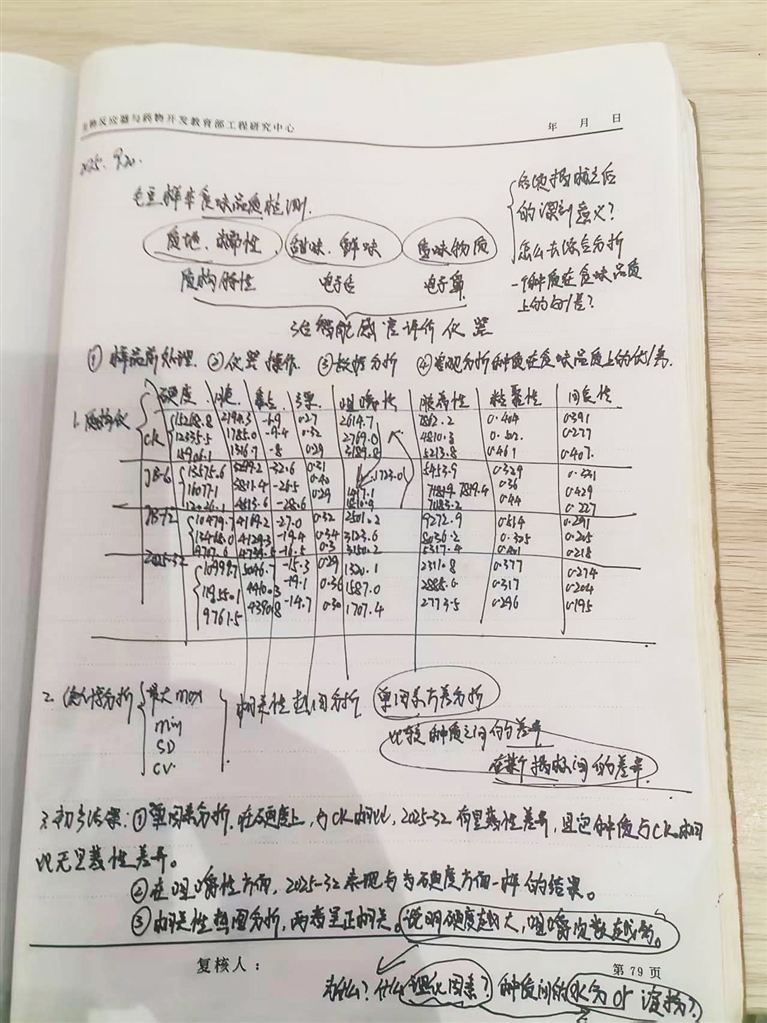 生物反应器与药物开发教育部工程研究中心 年 月 日
2025. 9.20.
毛豆样本食味品质检测.
质地、咀嚼性 甜味、鲜味 气味物质
质构特性 电子舌 电子鼻
各项指标之后
的深刻意义?
怎么去综合分析
一个种质在食味品质
上的好/差?
3台智能感官评价仪器
① 样品前处理. ② 仪器操作. ③ 数据分析 ④ 客观分析种质在食味品质上的优/劣.
1. 质构仪 硬度 弹 咀嚼性 胶着性 粘聚性 回复性
15268.8 2190.3 -6.9 0.27 2614.7 7862.2 0.404 0.391
CK 12335.5 1785.0 -9.4 0.32 2769.0 4810.3 0.502. 0.277
15906.1 1316.7 -8 0.29 3189.8 5213.8 0.461 0.407.
JB-6 13575.6 5299.2 -32.6 0.31 1723.0 5453.9 0.329 0.331
16077.1 5811.4 -26.5 0.40 7819.4 0.36 0.429
4813.6 -28.6 0.29 7083.2 0.44 0.227
JB-12 10479.7 4169.2 -27.0 0.32 2501.2 9272.9 0.614 0.291
13468.0 4129.3 -19.4 0.34 3123.6 8036.2 0.325 0.205
9707.6 4739.5 -16.5 0.3 3150.2 5317.4 0.401 0.218
2025-32 10999.7 5046.7 -15.3 0.29 1320.1 2310.8 0.377 0.274
11955.1 4910.3 -19.1 0.36 1587.0 2885.6 0.317 0.204
9761.5 4390.8 -14.7 0.30 1707.4 2773.5 0.296 0.195
2. 统计分析 最大 max 相关性热图分析 单因素方差分析
min 比较种质之间的差异
SD 在某个指标间的差异.
CV.
3. 初步结果: ① 单因素分析. 在硬度上, 与CK相比, 2025-32 有显著性差异, 且它种质与CK相
比无显著性差异。
② 在咀嚼性方面, 2025-32 表现与与硬度方面一样的结果。
③ 相关性热图分析, 两者呈正相关。说明硬度越大, 咀嚼次数越高。
复核人: 第 79 页
为什么? 什么理化因素? 种质间的水分 or 淀粉?